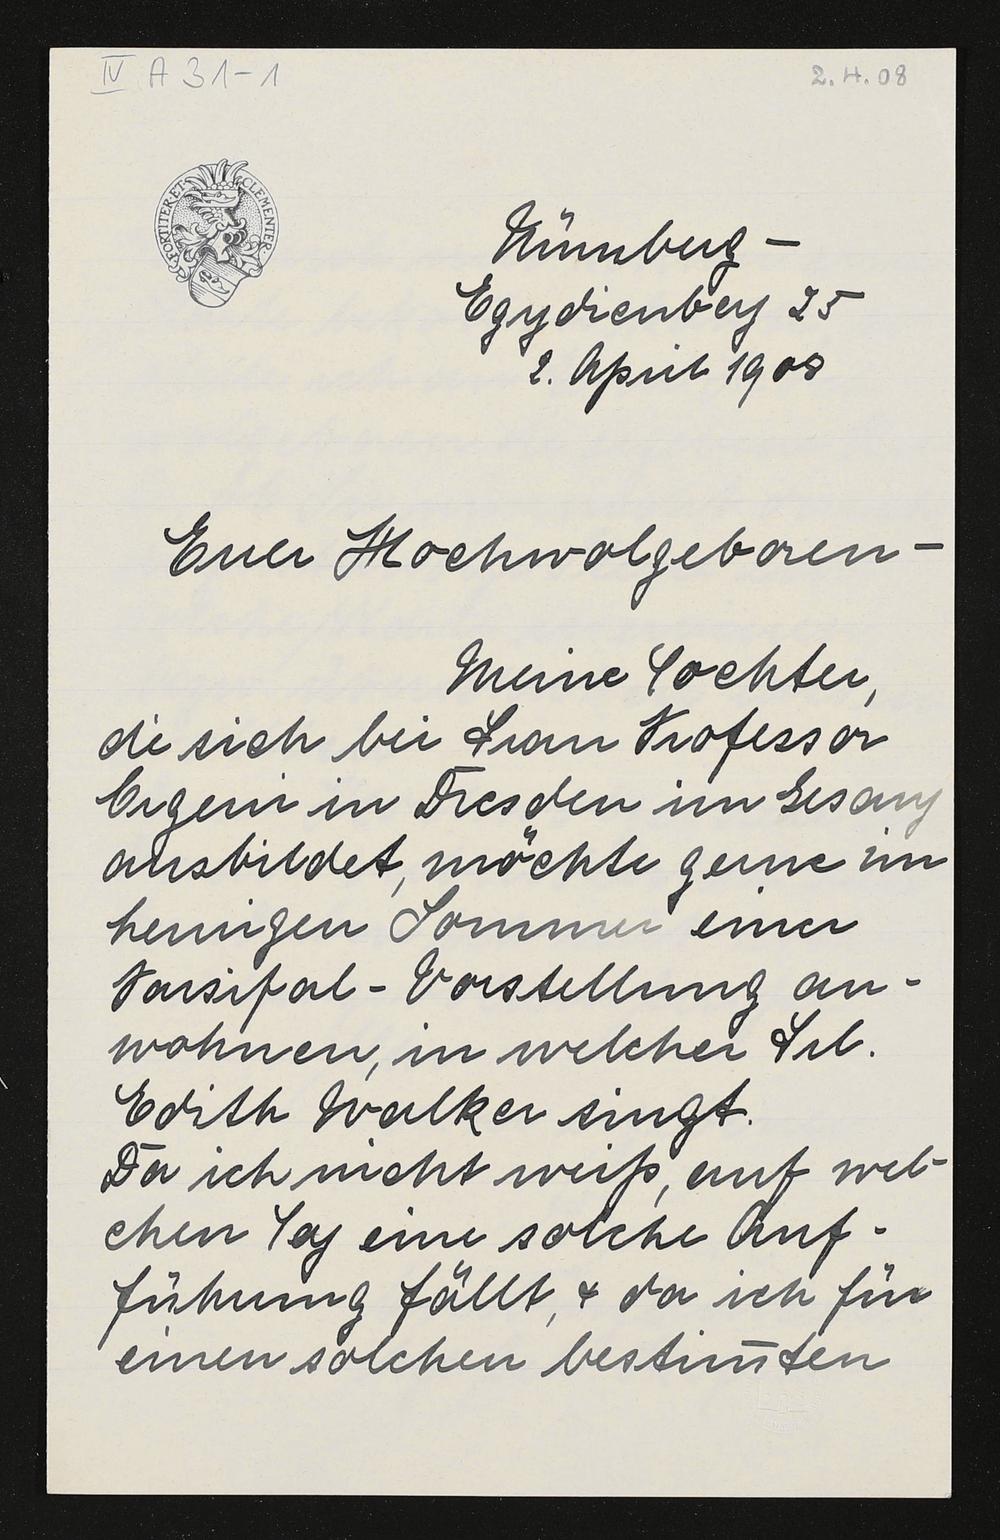 IV A 31-1
2.4.08
FORTITER ET CLEMENTER
Nürnberg –
Egydienberg 25
2. April 1908
Euer Hochwolgeboren –
Meine Tochter,
die sich bei Frau Professor
Orgeni in Dresden im Gesang
ausbildet, möchte gerne im
heurigen Sommer einer
Parsifal - Vorstellung an-
wohnen, in welcher Frl.
Edith Walker singt.
Da ich nicht weiß, auf wel-
chen Tag eine solche Auf-
führung fällt, & da ich für
einen solchen bestim̅ten